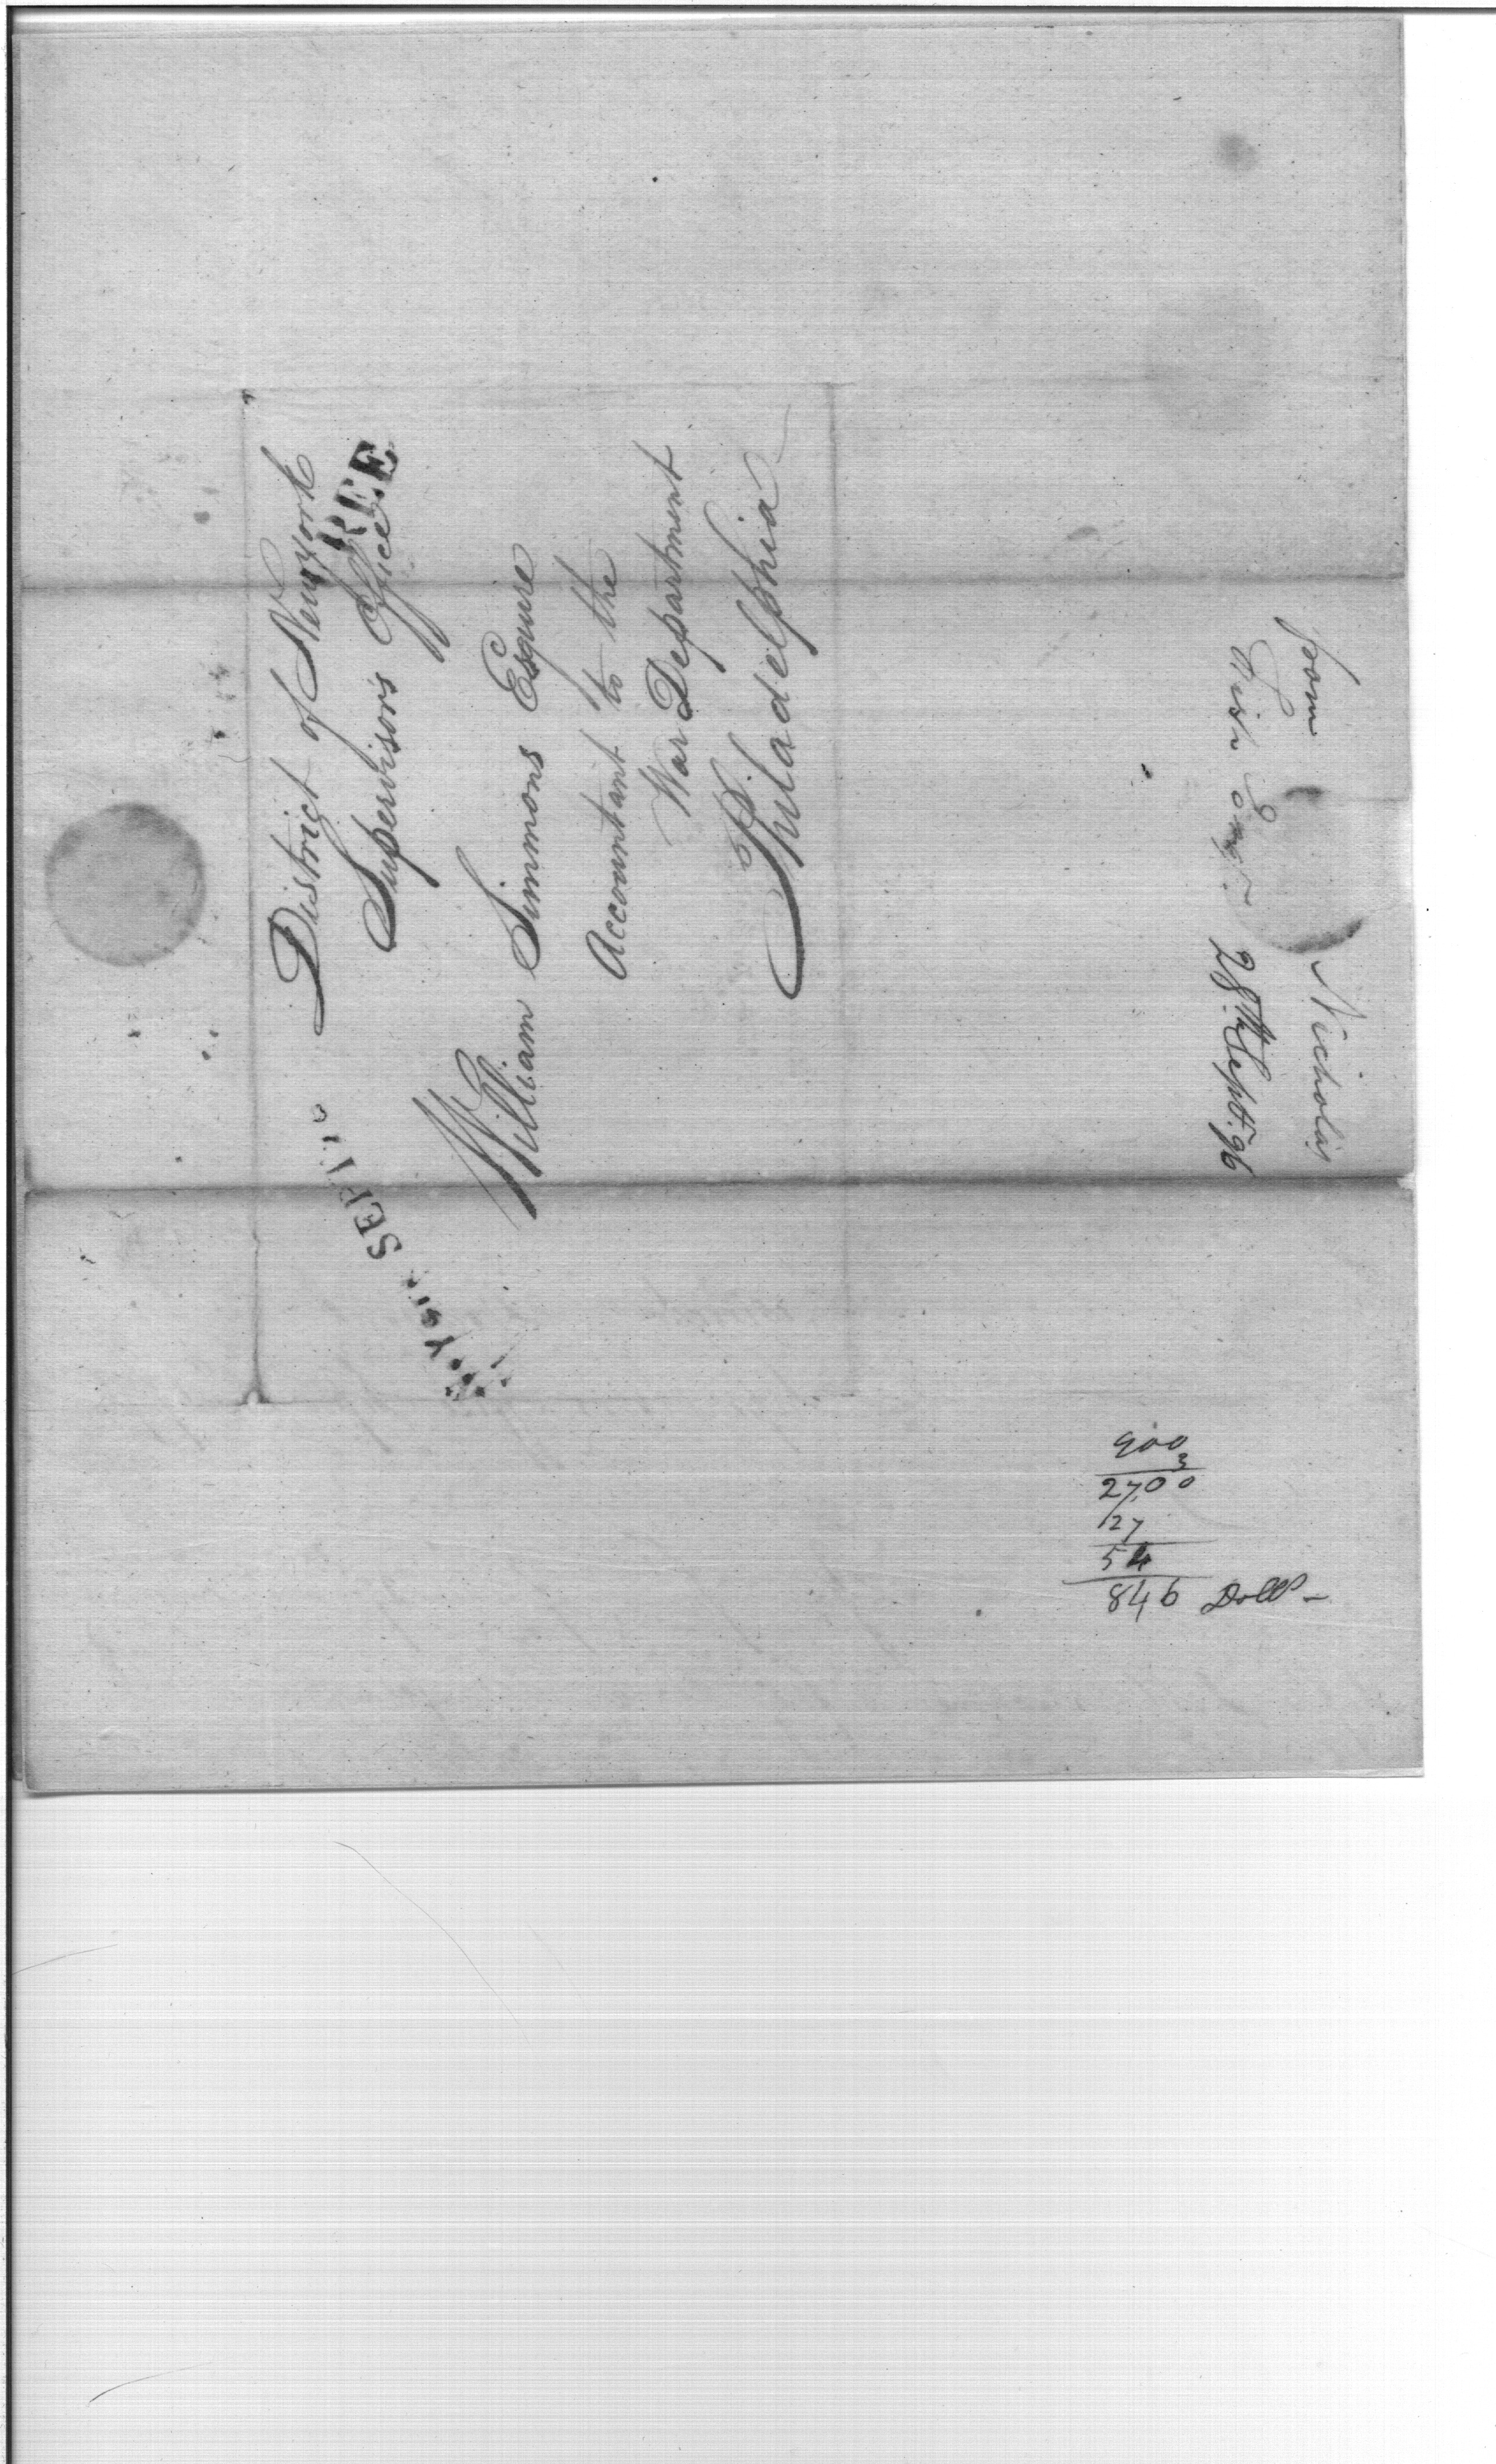 District of New york
Supervisors Office
REE
William Simmons Esquire
Accountant to the
War Department
Philadelphia
SEP
from Nicholas
Fish Esqr. 28th Sept. 96
900
3
2700
27
54
846 Dolls